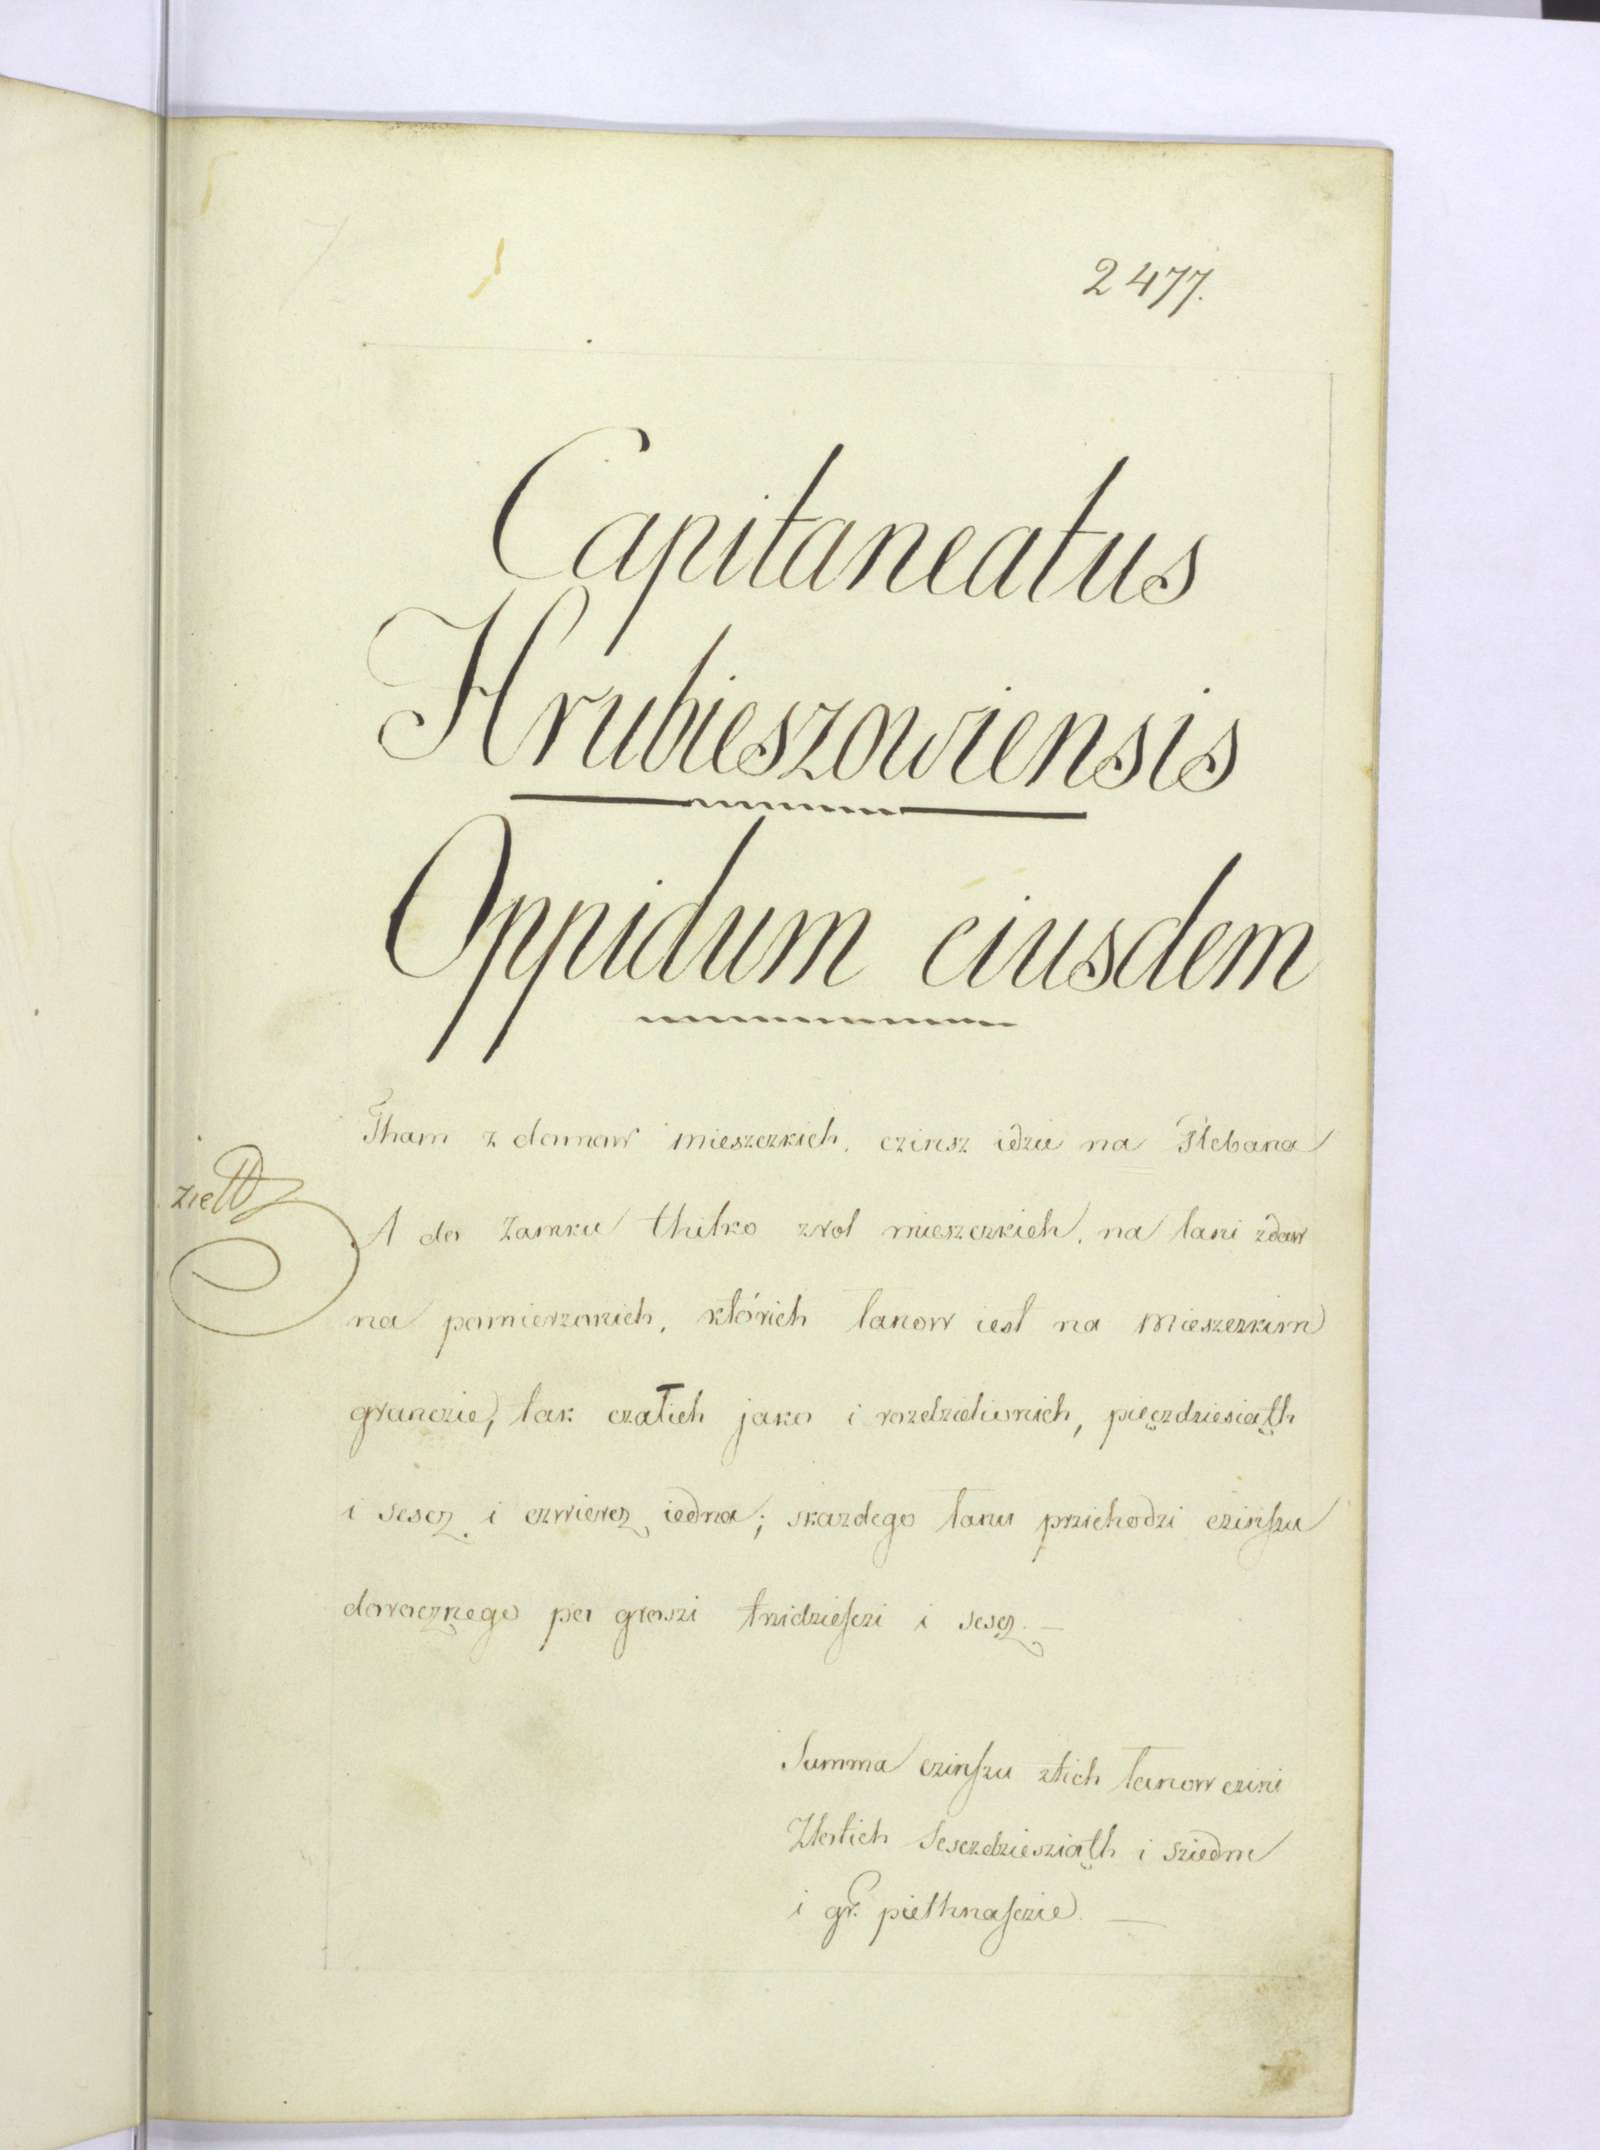 2477.
Capitaneatus
Hrubieszowiensis
Oppidum eiusdem
Tham z domow mieszczkich, czinsz idzie na Plebana
A do Zamku thilko zrol mieszczkich, na łani zdaw
na pomierzonich, których łanow iest na Mieszczkim
gruncie, tak czałich jako i rozdzielionich, pięczdziesiąth
i sescz i czwiercz iedna; skazdego łanu przichodzi czinszu
dorocznego po groszi trzidziesczi i sescz. —
Summa czinszu ztich łanow czini
Złotich Sesczdziesziąth i sziedm
i gr. piethnasczie. —